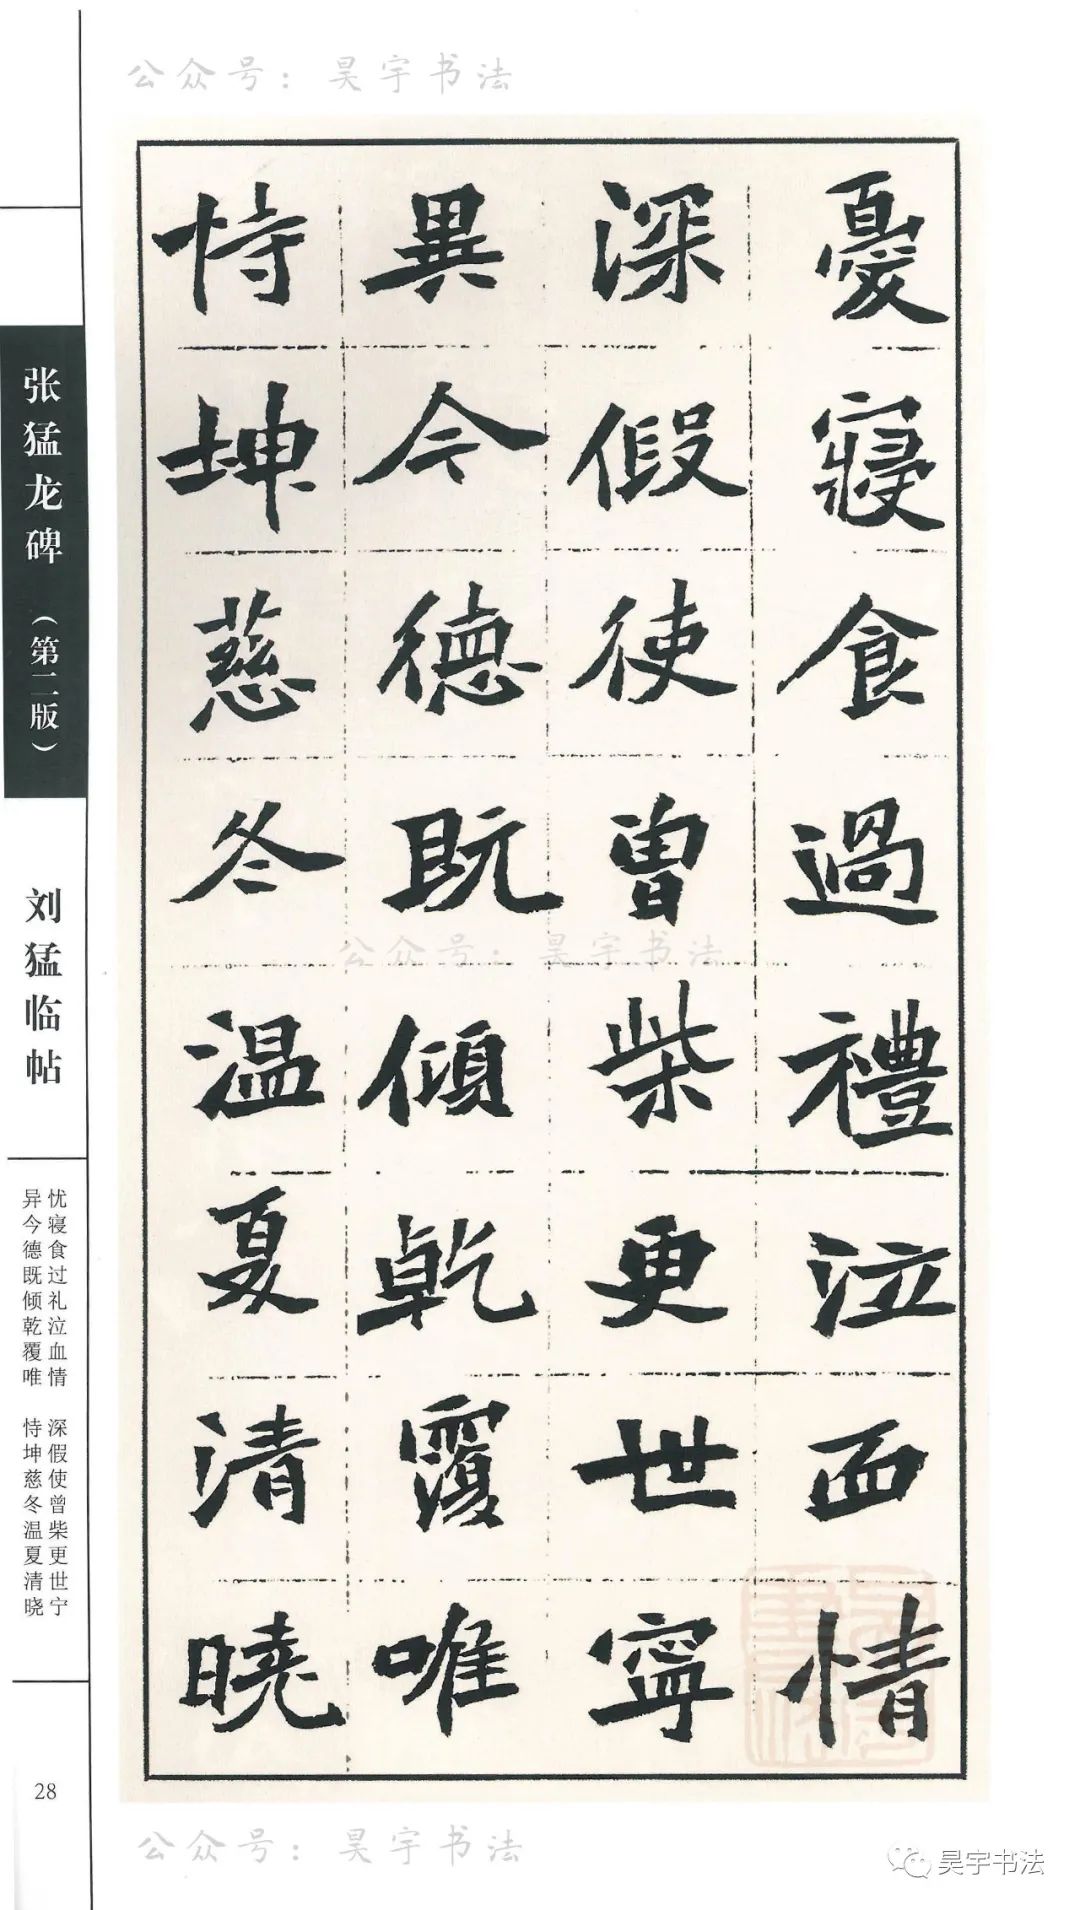 公众号：昊宇书法
憂寢食過禮泣血情
深假使曾柴更世寧
異今德既傾乾覆唯
恃坤慈冬温夏清曉
公众号：昊宇书法
张猛龙碑（第二版）
刘猛临帖
忧寝食过礼泣血情 深假使曾柴更世宁
异今德既倾乾覆唯 恃坤慈冬温夏清晓
28
公众号：昊宇书法
昊宇书法